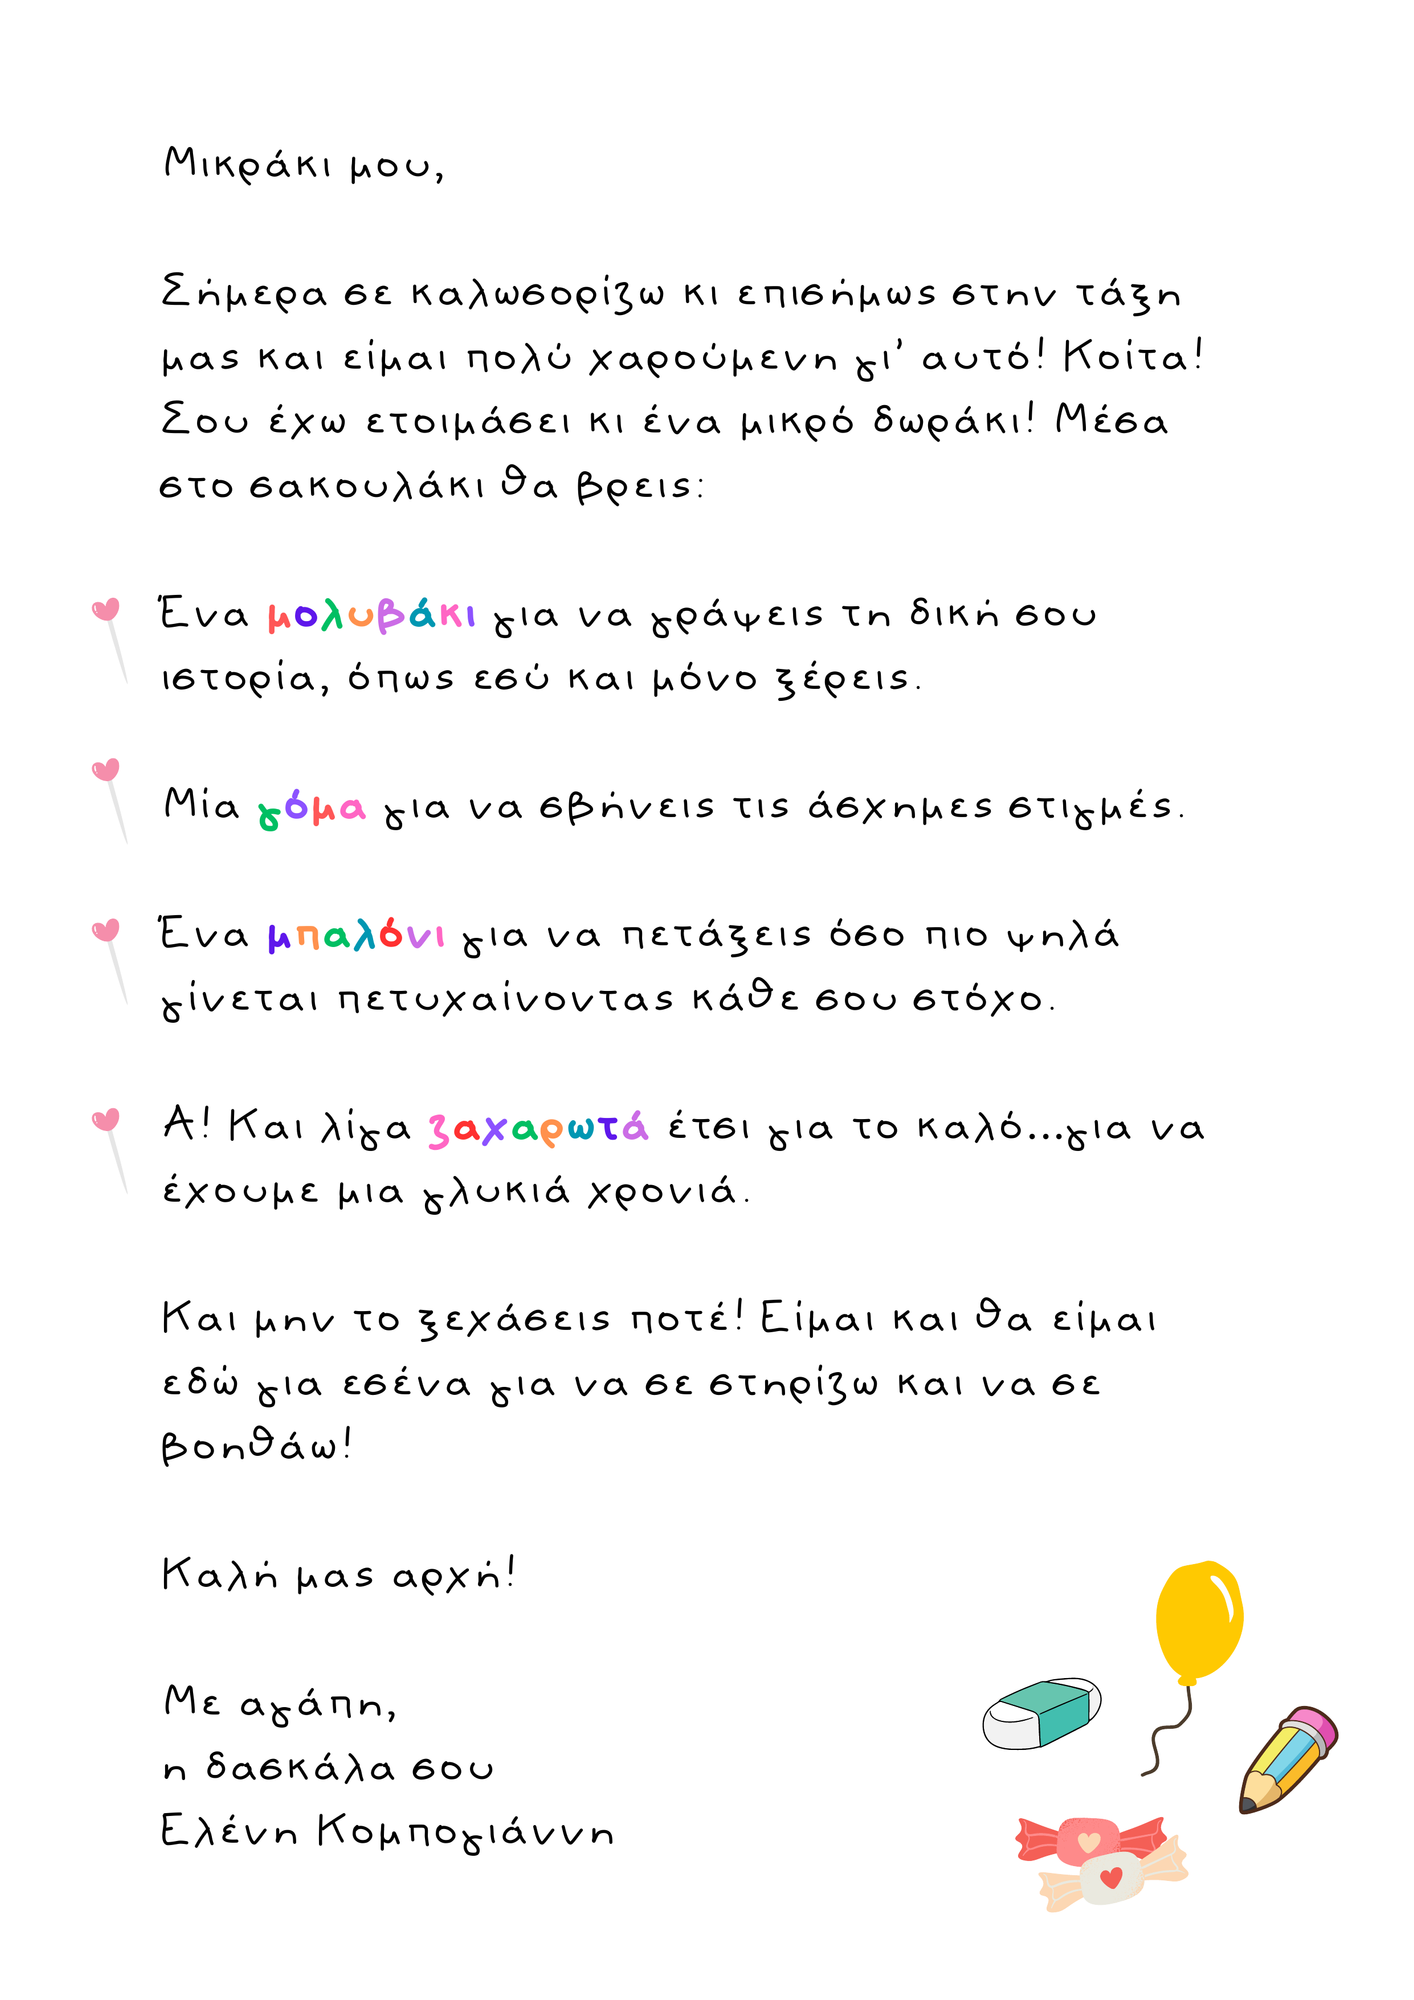 Μικράκι μου,
Σήμερα σε καλωσορίζω κι επισήμως στην τάξη
μας και είμαι πολύ χαρούμενη γι' αυτό! Κοίτα!
Σου έχω ετοιμάσει κι ένα μικρό δωράκι! Μέσα
στο σακουλάκι θα βρεις:
Ένα μολυβάκι για να γράψεις τη δική σου
ιστορία, όπως εσύ και μόνο ξέρεις.
Μία γόμα για να σβήνεις τις άσχημες στιγμές.
Ένα μπαλόνι για να πετάξεις όσο πιο ψηλά
γίνεται πετυχαίνοντας κάθε σου στόχο.
Α! Και λίγα ζαχαρωτά έτσι για το καλό...για να
έχουμε μια γλυκιά χρονιά.
Και μην το ξεχάσεις ποτέ! Είμαι και θα είμαι
εδώ για εσένα για να σε στηρίζω και να σε
βοηθάω!
Καλή μας αρχή!
Με αγάπη,
η δασκάλα σου
Ελένη Κομπογιάννη